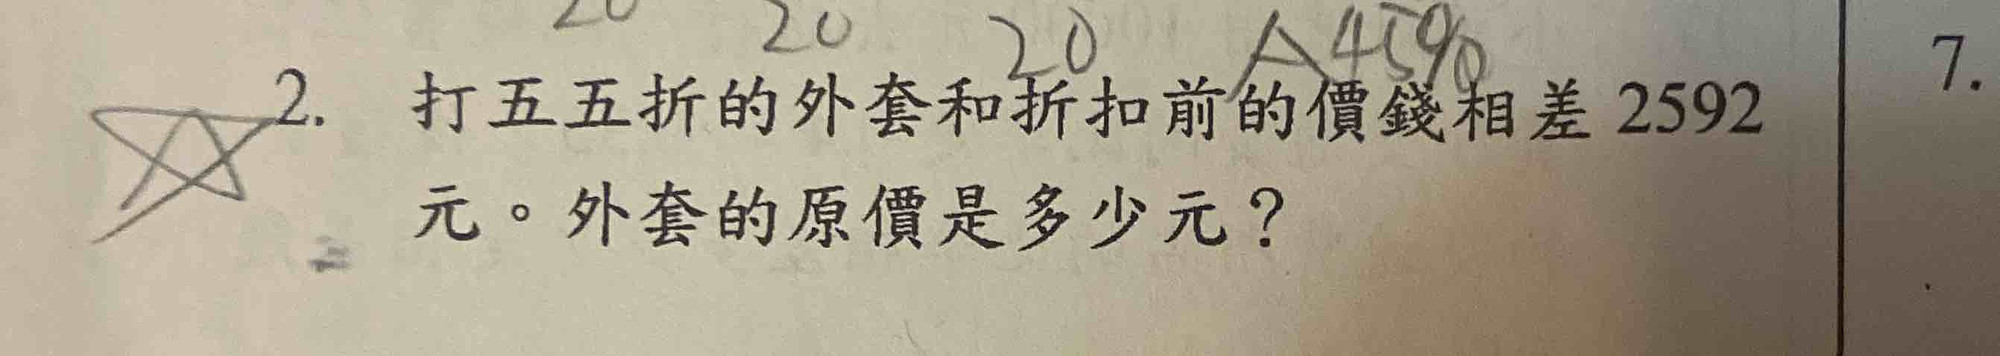 20 20 20 A45%
2. 打五五折的外套和折扣前的價錢相差 2592
元。外套的原價是多少元？
7.